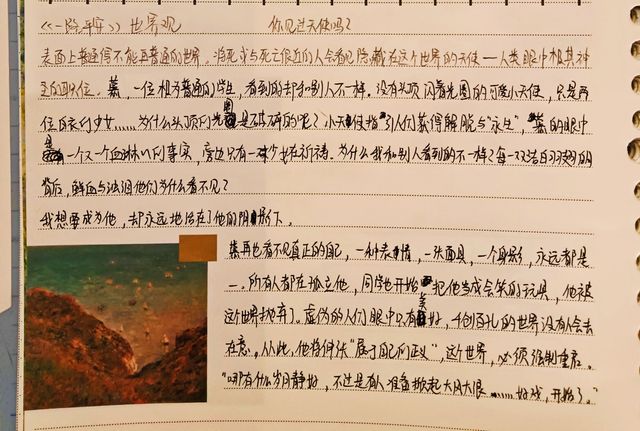 《一路平安》世界观 你见过天使吗?
表面上普通得不能再普通的世界。将死或与死亡很近的人会看见隐藏在这个世界的天使——人类眼中极其神
圣的职位。慕,一位极为普通的学生,看到的却和别人不一样。没有头顶闪着光圈的可爱小天使,只是两
位白衣的少女……为什么头顶的光圈是不破碎的呢?小天使指引人们获得解脱与“永生”,慕的眼中
是一个又一个血淋淋的事实,旁边只有一群少女在祈祷。为什么我和别人看到的不一样?每一双洁白羽翅的
背后,鲜血与泪泪他们为什么看不见?
我想要成为他,却永远地活在了他的阴影下。
慕再也看不见真正的自己,一种表情,一张面具,一个身影,永远都是
一。所有人都在孤立他,同学也开始把他当成会笑的玩具,他被
这个世界抛弃了。虚伪的人们眼中只有美好,千创百孔的世界没有人会去
在意。从此,他将何伏“属于自己的正义”,这世界,必须强制重启。
“哪有什么岁月静好,不过是有人准备掀起大风大浪……好戏,开始了。”